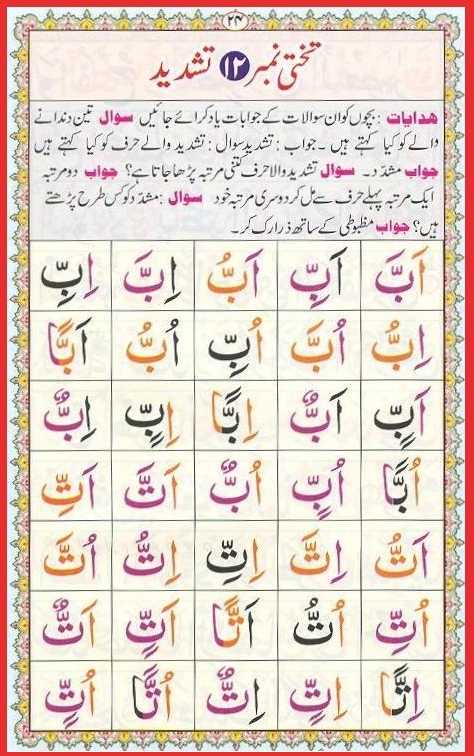 ۲۴
تختی نمبر ۱۲ تشدید
هدایات : بچوں کو ان سوالات کے جوابات یاد کرائے جائیں سوال تین دندانے
والے کو کیا کہتے ہیں ۔ جواب : تشدید سوال : تشدید والے حرف کو کیا کہتے ہیں
جواب مشدّد ۔ سوال تشدید والا حرف کتنی مرتبہ پڑھا جاتا ہے؟ جواب دو مرتبہ
ایک مرتبہ پہلے حرف سے مل کر دوسری مرتبہ خود سوال : مشدّد کو کس طرح پڑھتے
ہیں؟ جواب مظبوطی کے ساتھ ذرا رک کر ۔
اَبَّ اَبِّ اَبُّ اِبَّ اِبِّ
اِبُّ اُبَّ اُبِّ اُبُّ اَبًّا
اَبٍّ اَبٌّ اِبًّا اِبٍّ اِبٌّ
اُبًّا اُبٍّ اُبٌّ اَتَّ اَتِّ
اَتُّ اِتَّ اِتِّ اِتُّ اُتَّ
اُتِّ اُتُّ اَتًّا اَتٍّ اَتٌّ
اِتًّا اِتٍّ اِتٌّ اُتًّا اُتٍّ